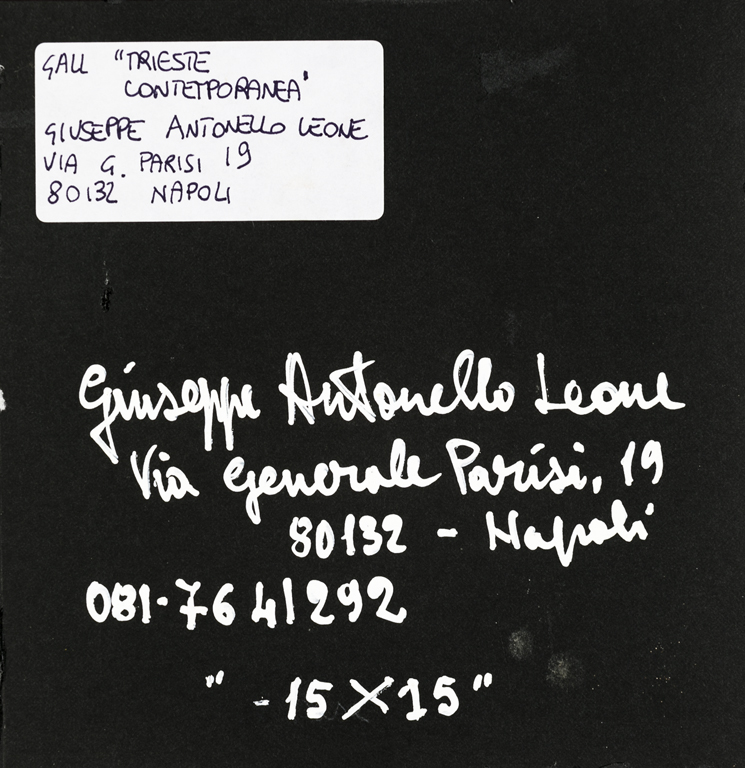 GALL "TRIESTE
CONTETPORANEA"
GIUSEPPE ANTONELLO LEONE
VIA G. PARISI 19
80132 NAPOLI
Giuseppe Antonello Leone
Via Generale Parisi, 19
80132 - Napoli
081-7641292
" - 15X15"